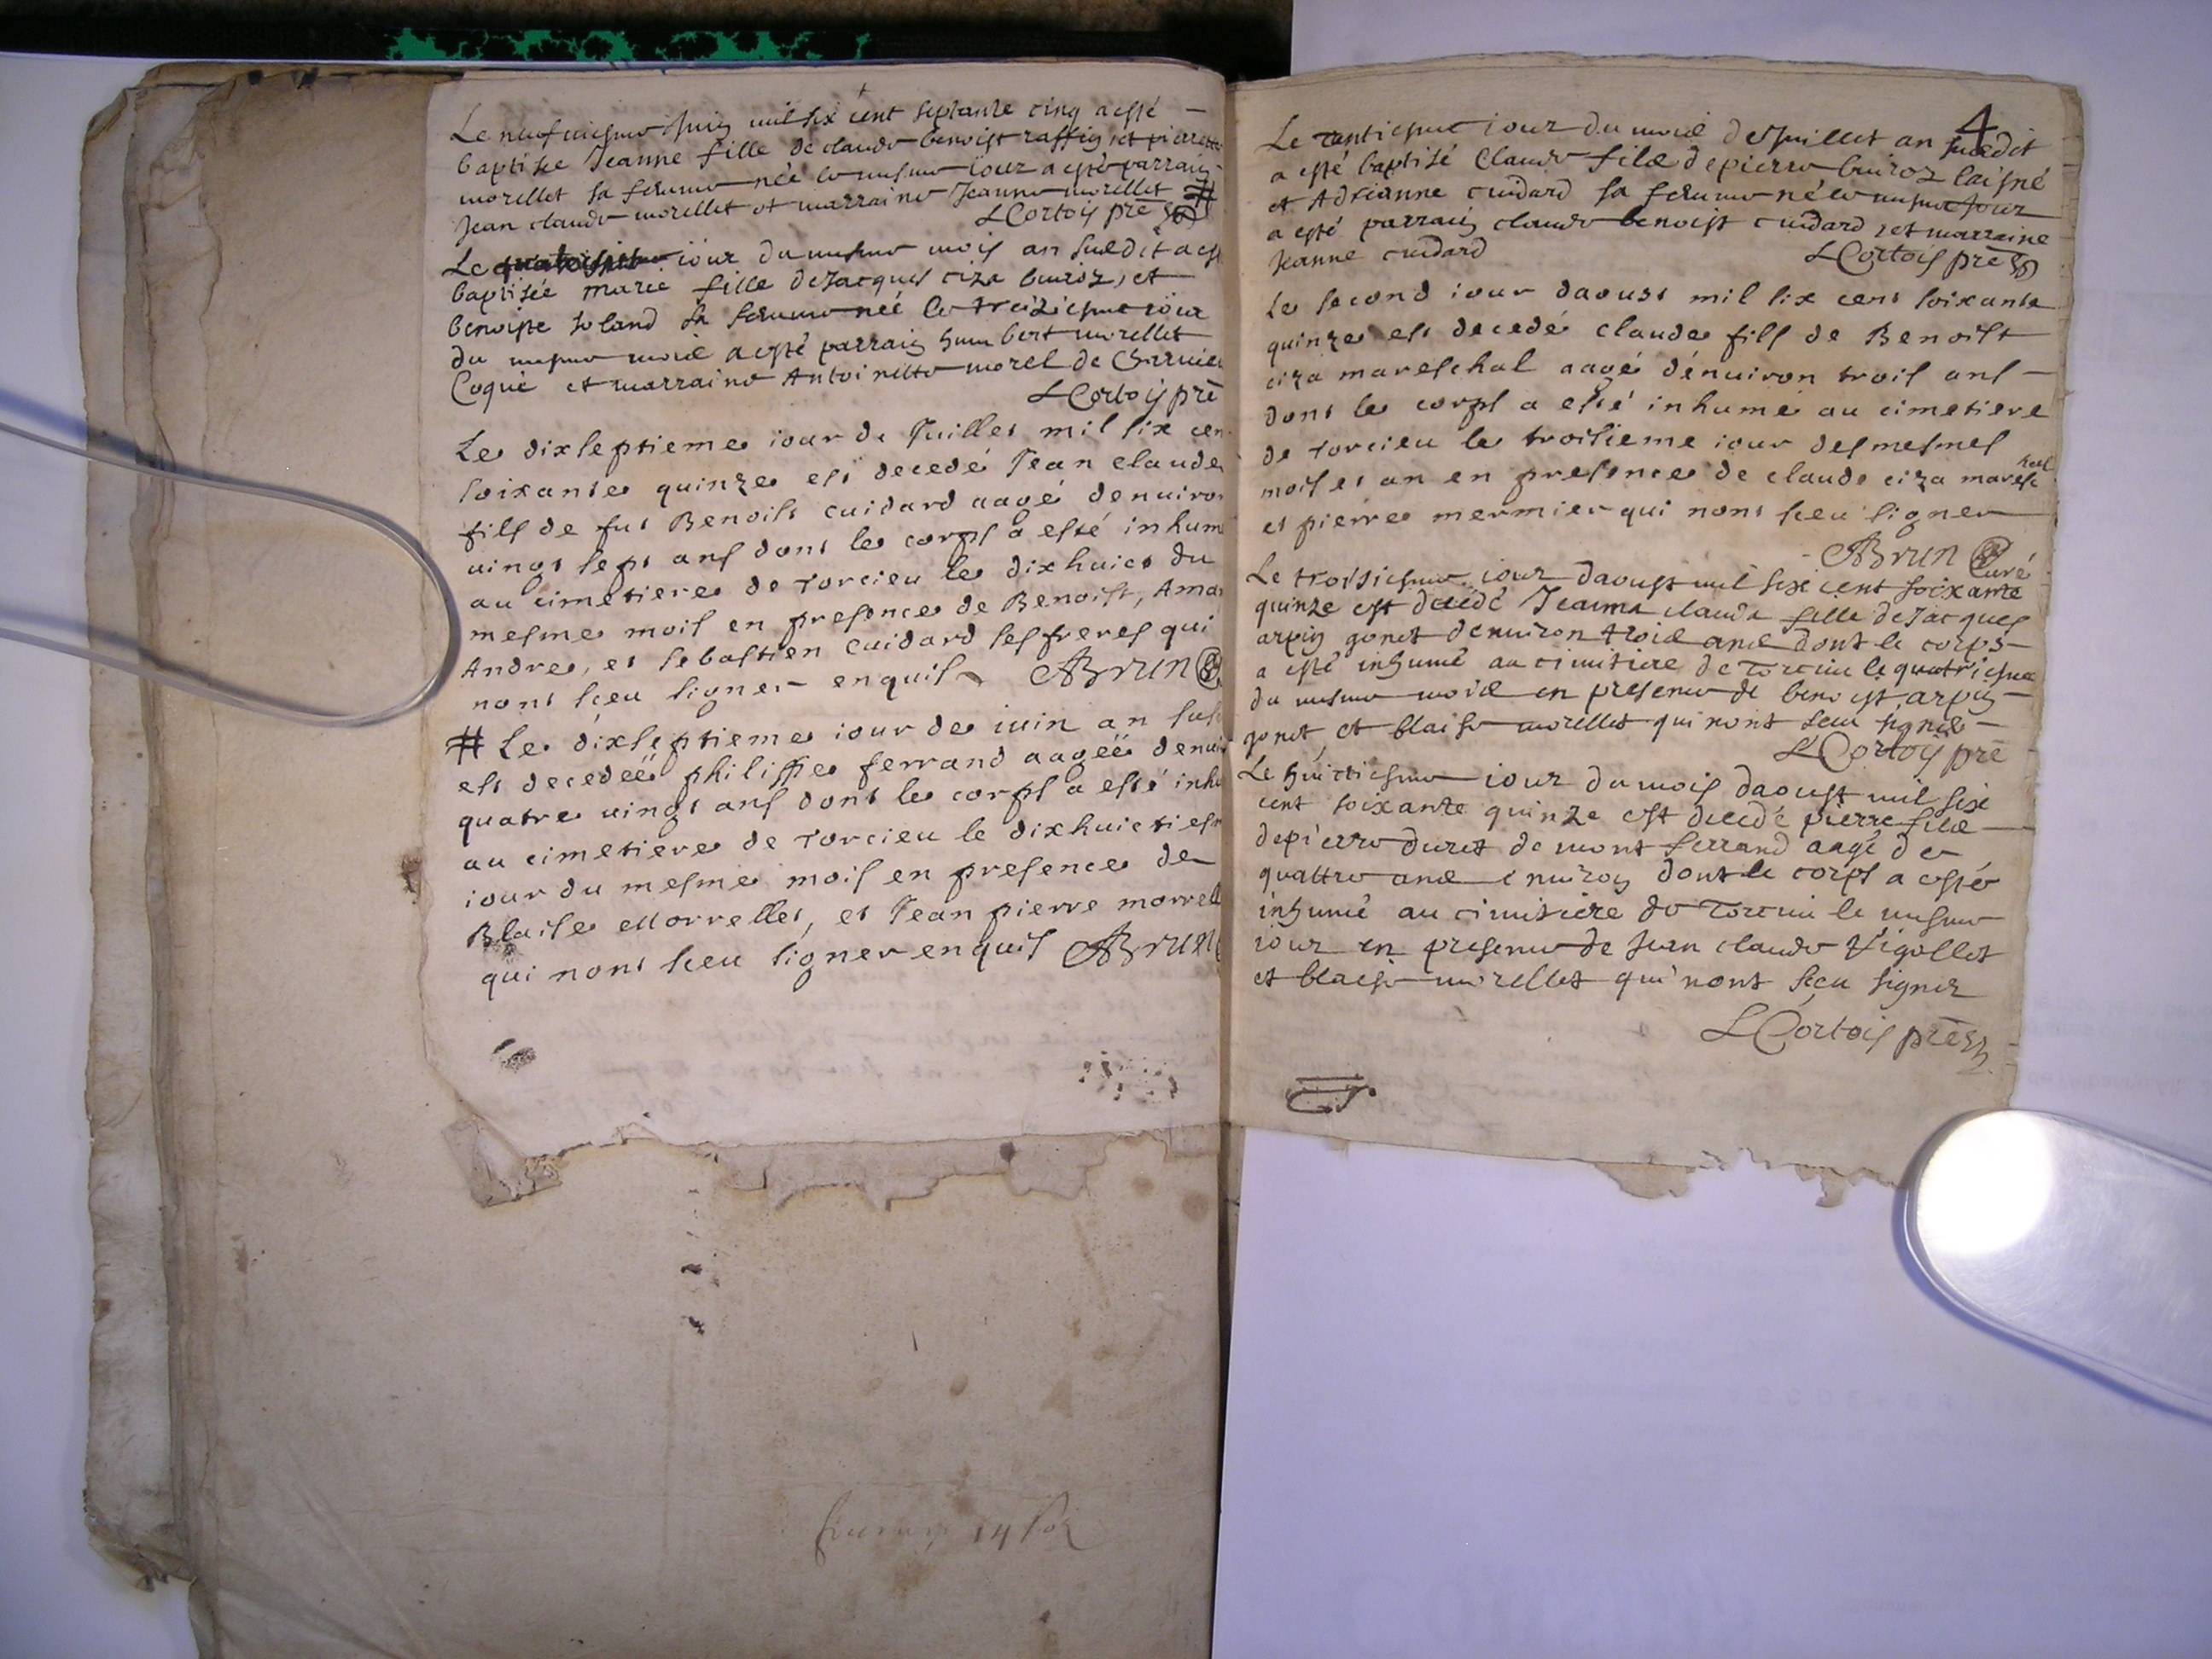 Le neufviesme Juin mil six cent septante cinq a esté
baptisée Jeanne fille de claude benoist raffin et pierrette
morellet sa femme née le mesme iour a esté parrain
Jean claude morellet et marraine Jeanne morellet #
LCortois pre
Le iour du mesme mois an susdit a est
baptisée marie fille de Jacques ciza buiroz, et
benoiste soland sa femme née le treiziesme iour
du mesme mois a esté parrain humbert morellet
Coque et marraine Antoinette morel de
LCortois pre
Le dixseptieme iour de Juillet mil six cen
soixante quinze est decedé Jean claude
fils de fut Benoist cuidard aagé denuiron
uingt sept ans dont le corps a esté inhum
au cimetiere de torcieu le dixhuict du
mesme mois en presence de Benoist, Ama
Andre, et sebastien cuidard ses freres qui
nont sceu signer enquis ABrun
# Le dixseptieme iour de iuin an sus
est decedeë philippe ferrand aageë denui
quatre uingt ans dont le corps a esté inhu
au cimetiere de torcieu le dixhuictiesm
iour du mesme mois en presence de
Blaise Morrellet, et Jean pierre morrell
qui nont sceu signer enquis ABrun
4
Le iour du mois de Juillet an susdit
a esté baptisé Claude fils de pierre buiroz laisné
et Adrianne cuidard sa femme né le mesme Jour
a esté parrain claude benoist cuidard et marraine
Jeanne cuidard LCortois pre
Le second iour daoust mil six cent soixante
quinze est decedé claude fils de Benoist
ciza mareschal aagé dénuiron trois ans
dont le corps a esté inhumé au cimetiere
de torcieu le troisieme iour des mesmes
mois et an en presence de claude ciza maresc
hal
et pierre mermier qui nont sceu signer
ABrun Curé
Le troisiesme iour daoust mil six cent soixante
quinze est decedé Jeanne claude fille de Jacques
arpin gonet denuiron trois ans dont le corps
a esté inhumé au cimitiere de Torcieu le quatriesme
du mesme mois en presence de benoist arpin
gonet, et blaise morellet qui nont sceu signer
LCortois pre
Le huictiesme iour du mois daoust mil six
cent soixante quinze est decedé pierre fils
de pierre duret de mont ferrand aagé de
quattre ans enuiron dont le corps a esté
inhumé au cimitiere de Torcieu le mesme
iour en presence de Jean claude Vigollet
et blaise morellet qui nont sceu signer
LCortois pre